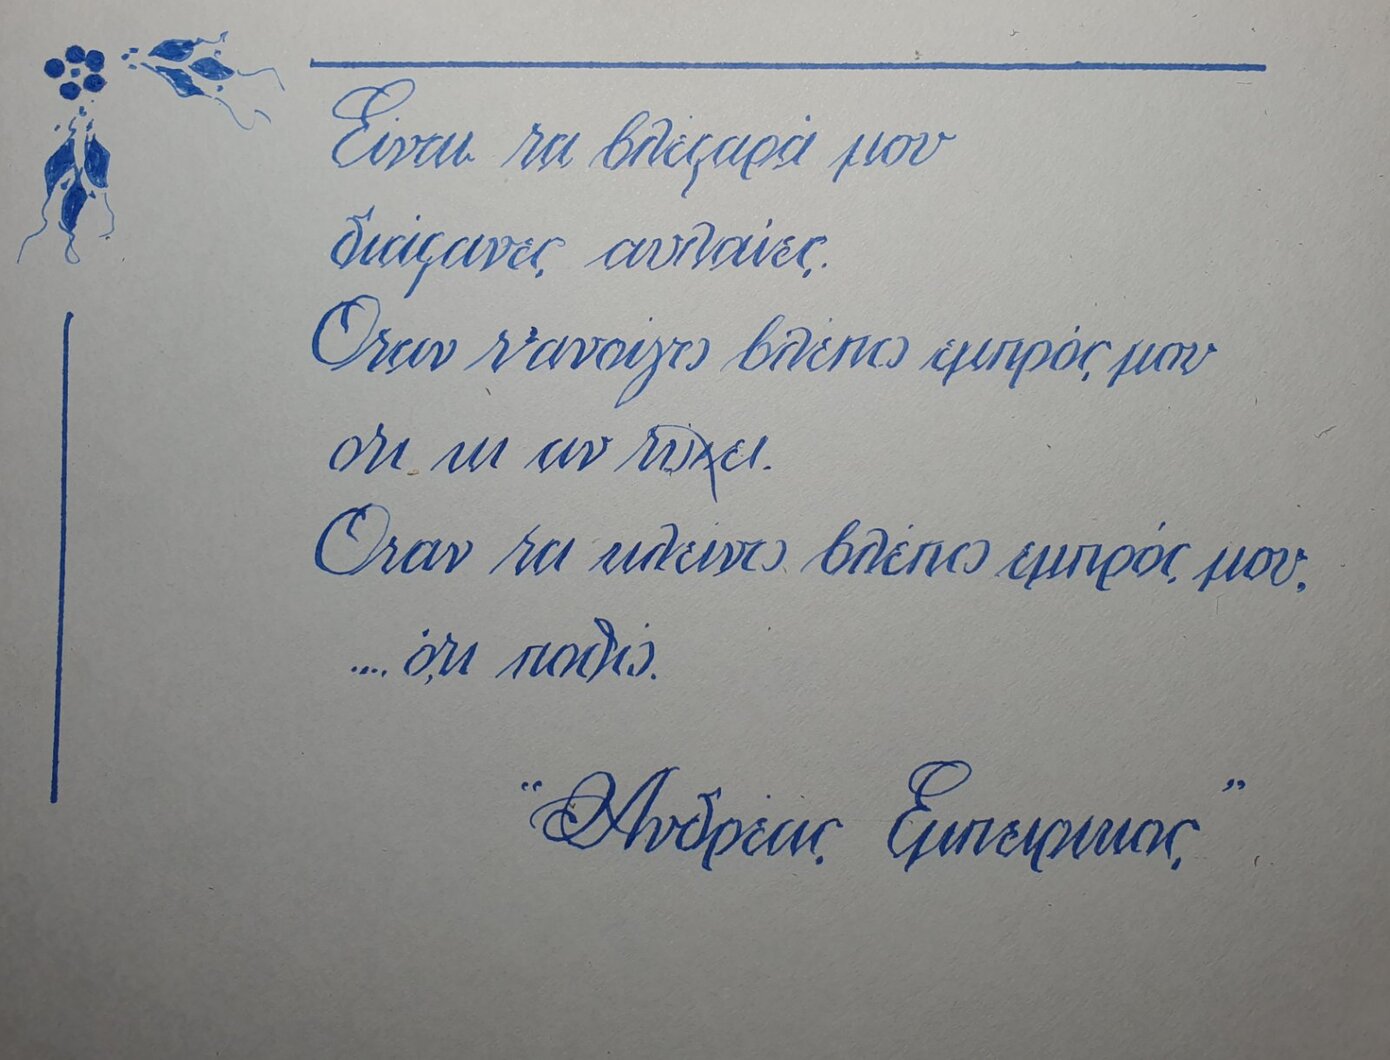 Είναι τα βλέφαρά μου
διάφανες αυλαίες.
Όταν τ'ανοίγω βλέπω εμπρός μου
ότι κι αν τύχει.
Όταν τα κλείνω βλέπω εμπρός μου,
.... ότι ποθώ.
“Ανδρέας Εμπειρικος”